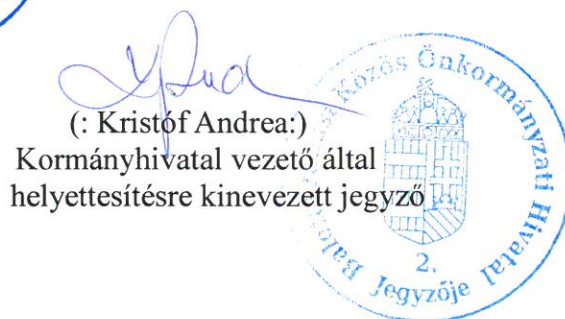 (: Kristóf Andrea:)
Kormányhivatal vezető által
helyettesítésre kinevezett jegyző
Közös Önkormányzati Hivatal
2.
Jegyzője